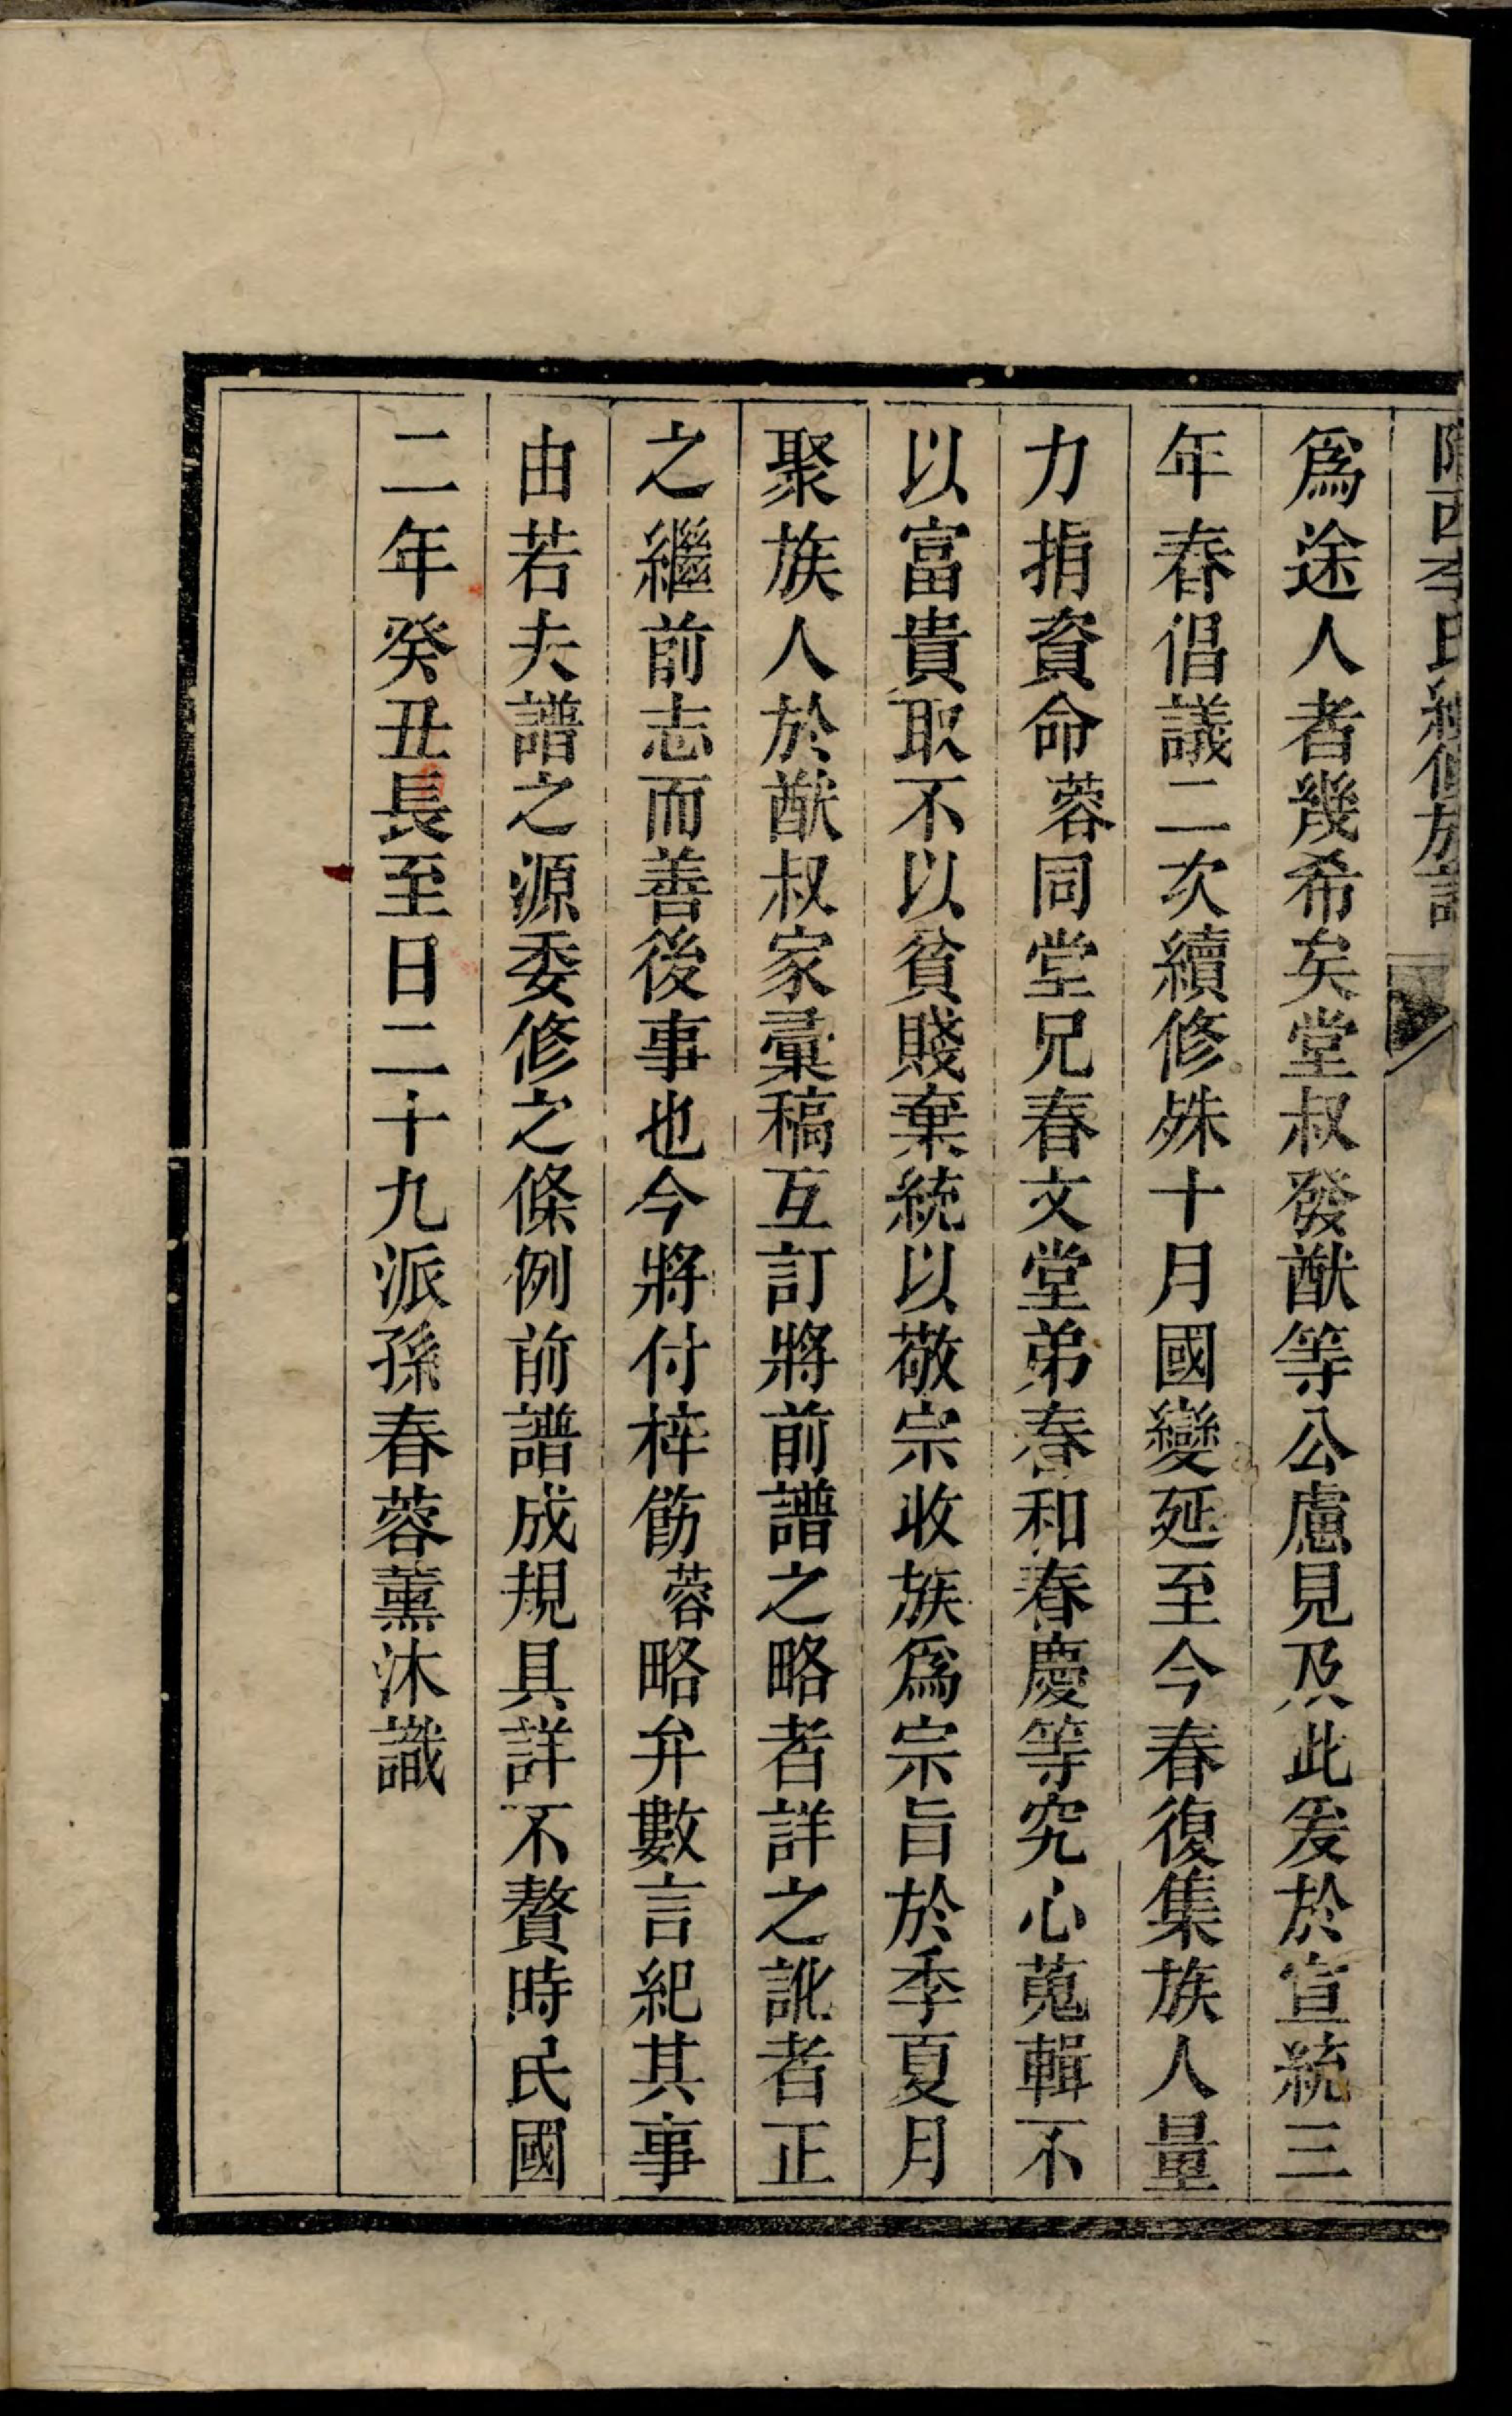 隴西李氏續修族譜
爲途人者幾希矣堂叔發猷等公慮見及此爰於宣統三
年春倡議二次續修殊十月國變延至今春復集族人量
力捐資命蓉同堂兄春文堂弟春和春慶等究心蒐輯不
以富貴取不以貧賤棄統以敬宗收族爲宗旨於季夏月
聚族人於猷叔家彙稿互訂將前譜之略者詳之訛者正
之繼前志而善後事也今將付梓飭蓉略弁數言紀其事
由若夫譜之源委修之條例前譜成規具詳不贅時民國
二年癸丑長至日二十九派孫春蓉薰沐識